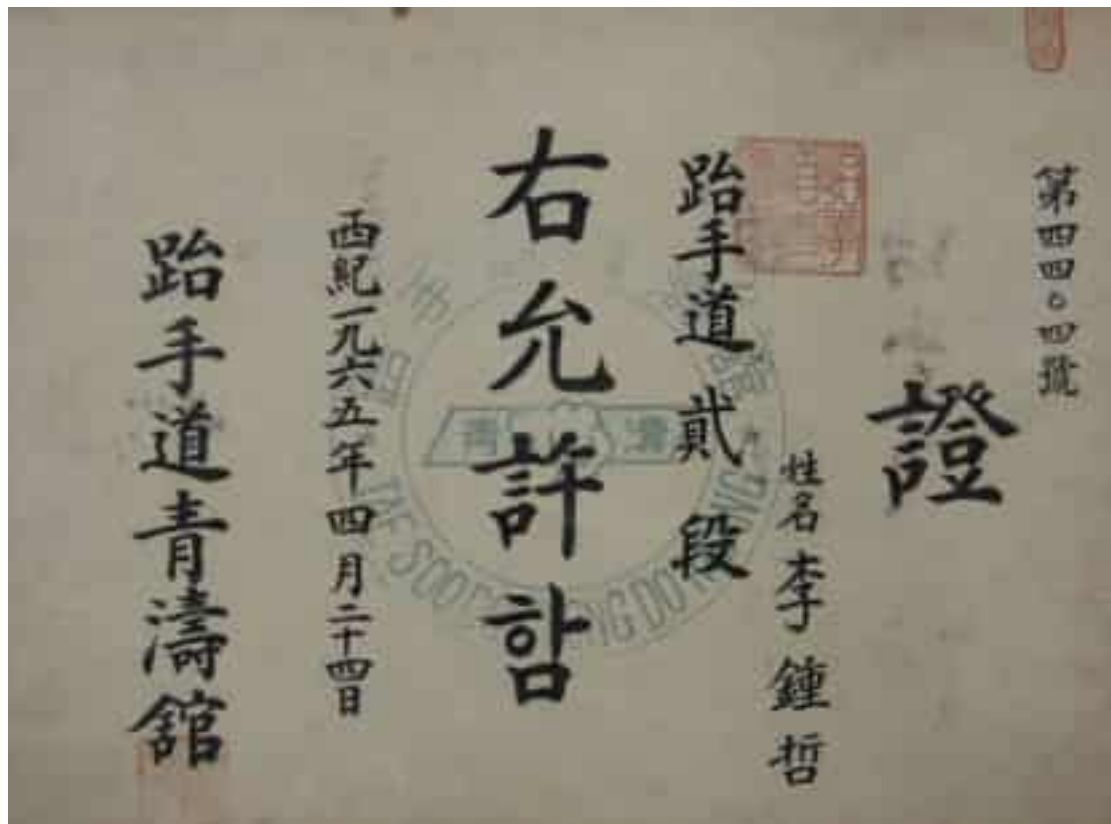 第四四〇四號
證
姓名 李鍾哲
跆手道 貳段
右允許함
西紀一九六五年四月二十四日
跆手道青濤舘
青濤
TAE SOO DO CHUNG DO KWAN